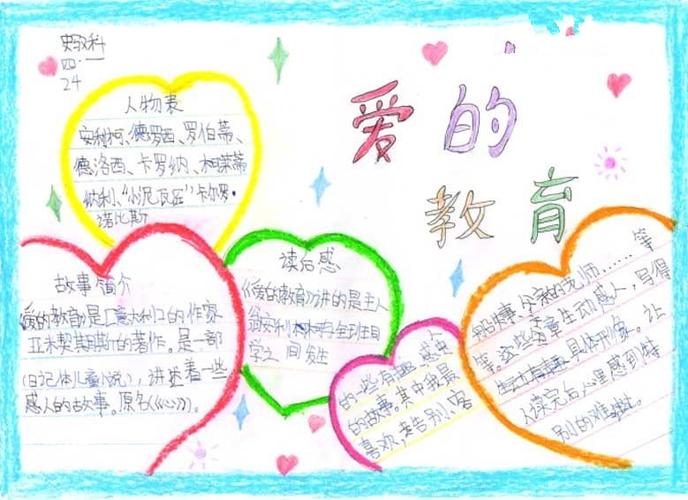 爱的
教育
四·一
24
人物表
安利柯、德罗西、罗伯蒂、
德洛西、卡罗纳、
"小泥瓦匠"卡尔罗·
诺比斯
故事简介
《爱的教育》是意大利的作家
亚米契斯的著作。是一部
(日记体儿童小说),讲述着一些
感人的故事。原名《心》。
读后感
《爱的教育》讲的是主人
翁安利柯
学之间发生
的一些有趣、感块
的故事。其中我最
喜欢,老告别、客
船the事、父亲的老师……等
等。这些文章生动感人,写得
具体形象。让
人读完后心里感到特
别的难